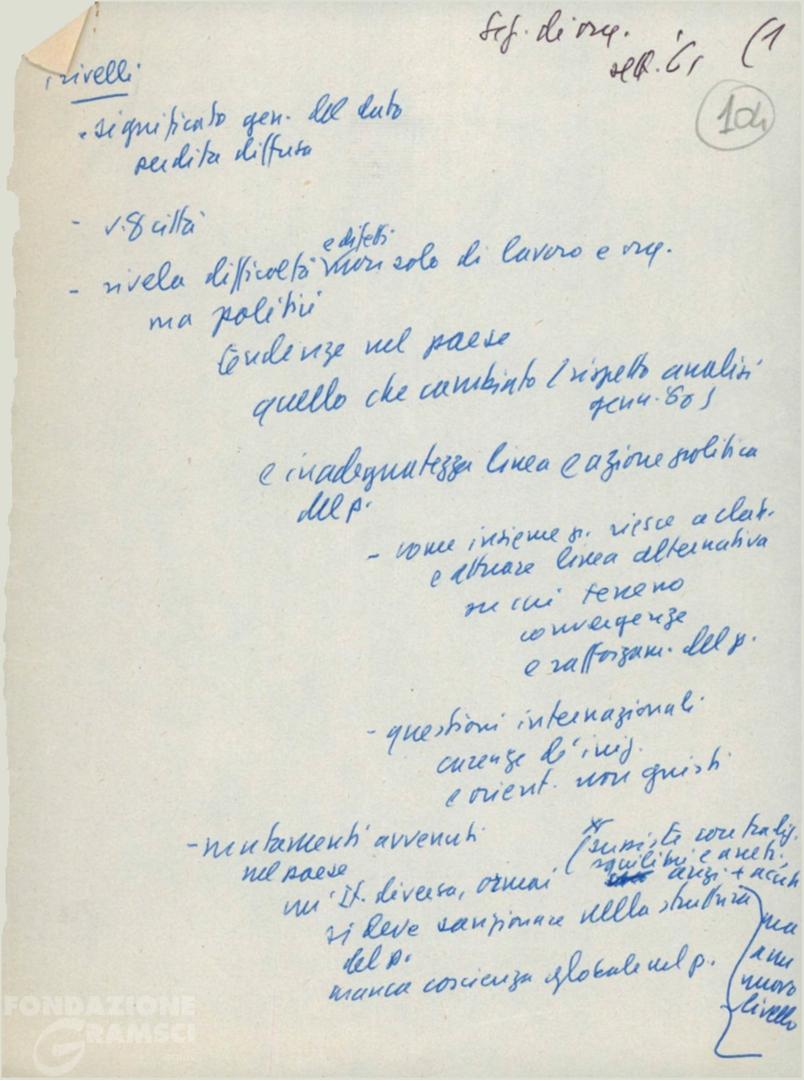 Seg. di org.
sett. 61 (1
104
rivelli
- significato gen. del dato
perdita diffusa
- v. 8 città
e difetti
- rivela difficoltà non solo di lavoro e org.
ma politici
tendenze nel paese
quello che cambiato (rispetto analisi
genn. 60)
e inadeguatezza linea e azione politica
del p.
- come insieme p. riesce a elab.
e attuare linea alternativa
su cui terreno
convergenze
e rafforzam. del p.
- questioni internazionali
carenze d'iniz.
e orient. non giusti
- mutamenti avvenuti
nel paese
(contradiz.
squilibri e arretr.
anzi + acuti
un'It. diversa, ormai
si deve sanzionare nella struttura
del p.
manca coscienza globale nel p.
ma
a un
nuovo
livello
FONDAZIONE
GRAMSCI